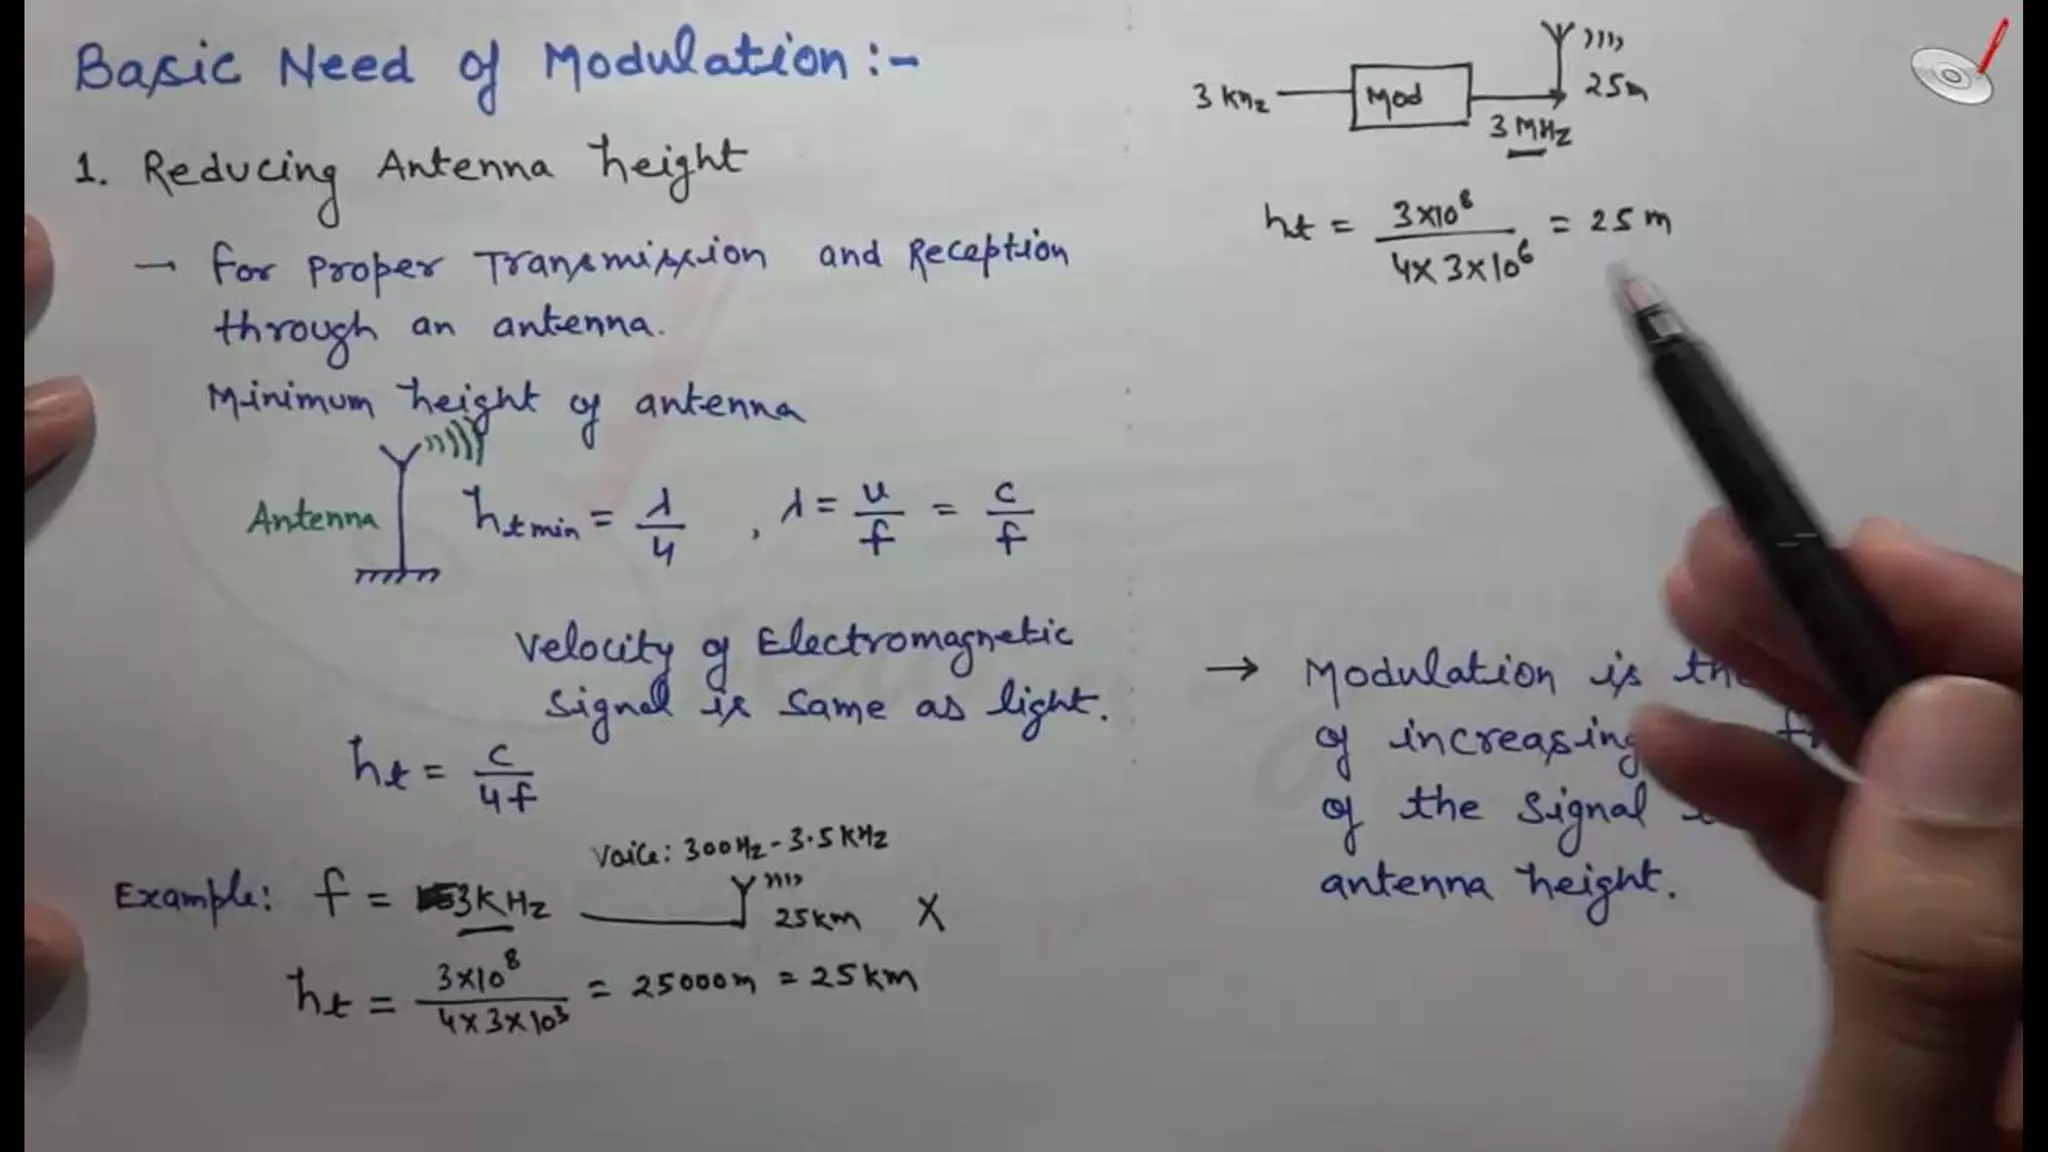 Basic Need of Modulation :-
1. Reducing Antenna height
→ for Proper Transmission and Reception
through an antenna.
Minimum height of antenna
Antenna
htmin = λ/4 , λ = u/f = c/f
Velocity of Electromagnetic
Signal is same as light.
ht = c/4f
Voice: 300Hz - 3.5 KHz
Example: f = 3KHz
25km X
ht = 3×10⁸/4×3×10³ = 25000m = 25km
3 KHz Mod 3 MHz 25m
ht = 3×10⁸/4×3×10⁶ = 25 m
→ Modulation is
of increasing
of the signal
antenna height.